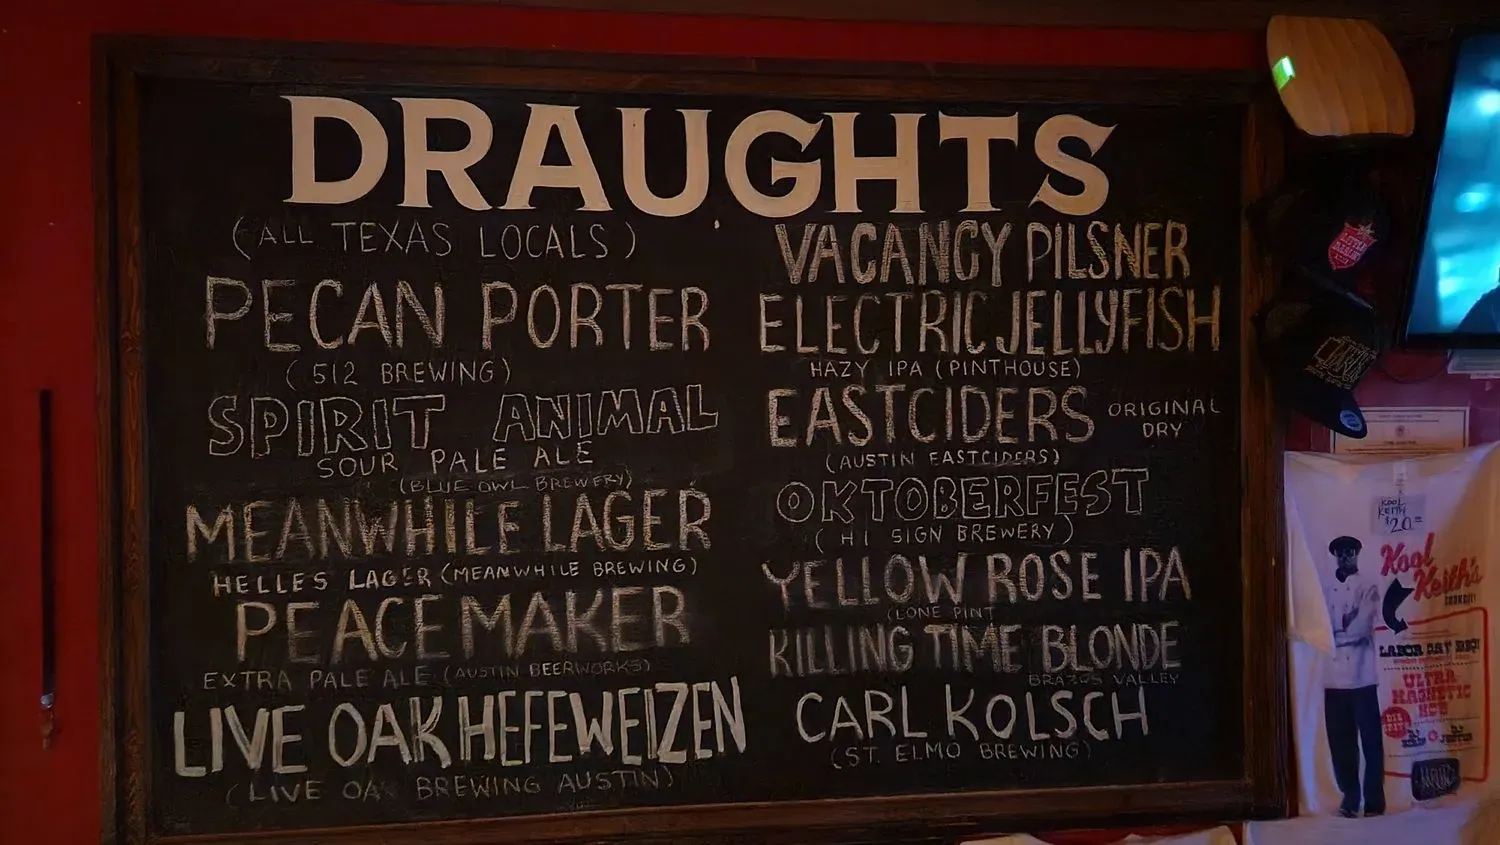 DRAUGHTS
(ALL TEXAS LOCALS)
PECAN PORTER
(512 BREWING)
SPIRIT ANIMAL
SOUR PALE ALE
(BLUE OWL BREWERY)
MEANWHILE LAGER
HELLES LAGER (MEANWHILE BREWING)
PEACEMAKER
EXTRA PALE ALE (AUSTIN BEERWORKS)
LIVE OAK HEFEWEIZEN
(LIVE OAK BREWING AUSTIN)
VACANCY PILSNER
ELECTRIC JELLYFISH
HAZY IPA (PINTHOUSE)
EASTCIDERS ORIGINAL
DRY
(AUSTIN EASTCIDERS)
OKTOBERFEST
(HI SIGN BREWERY)
YELLOW ROSE IPA
(LONE PINT
KILLING TIME BLONDE
BRAZOS VALLEY
CARL KOLSCH
(ST. ELMO BREWING)
KOOL
KEITH
$20
Kool
Keith's
LABOR DAY BBQ!
ULTRA
MAGNETIC